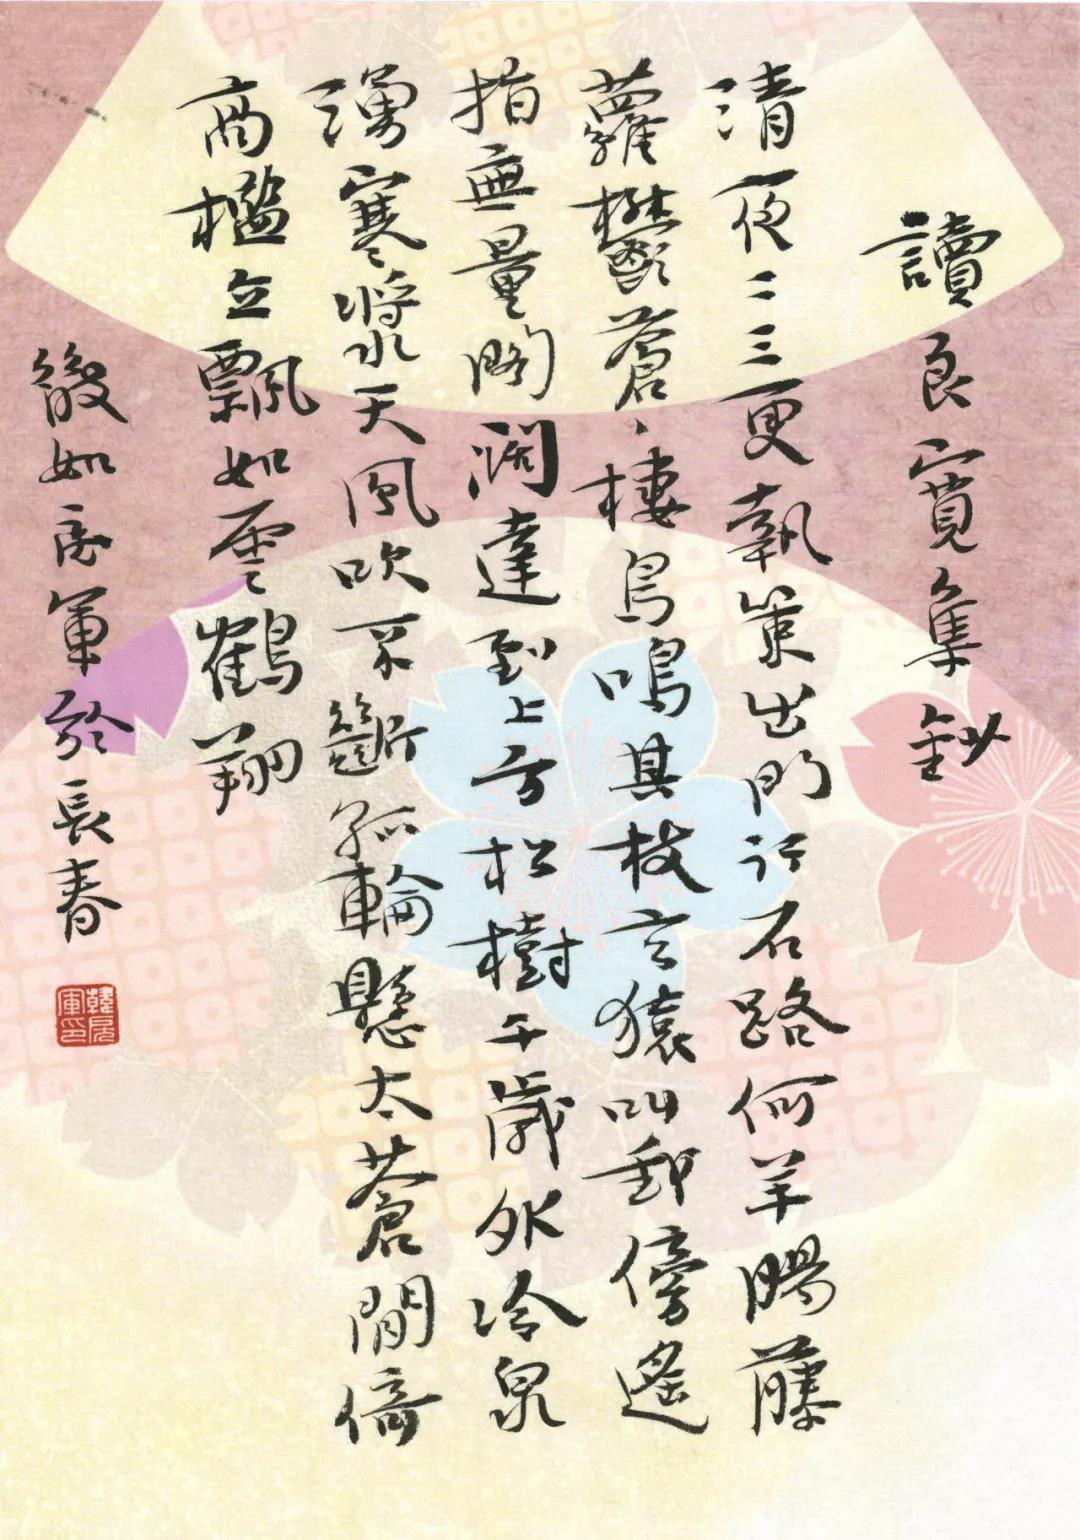 讀良寬集鈔
清夜二三更執策出門行石路何羊腸藤
蘿鬱蒼々棲鳥鳴其枝玄猿叫傍遙
指無量閣闊達到上方松樹千歲外冷泉
湧寒漿天風吹不斷孤輪懸太蒼間倚
高檻立飄如雲鶴翔
如居軍於長春
韓居軍印